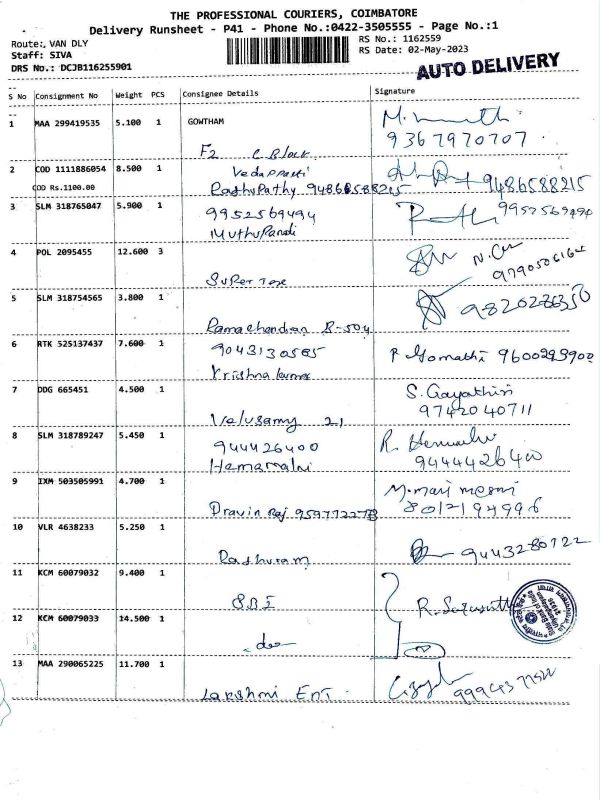 THE PROFESSIONAL COURIERS, COIMBATORE
Delivery Runsheet - P41 - Phone No.:0422-3505555 - Page No.:1
Route:, VAN DLY
RS No.: 1162559
Staff: SIVA
RS Date: 02-May-2023
DRS No.: DCJB116255901
AUTO DELIVERY
S No Consignment No Weight PCS Consignee Details Signature
1 MAA 299419535 5.100 1 GOWTHAM
9367970707
F2 C Block
2 COD 1111886054 8.500 1
COD Rs.1100.00
Raghupathy 9486588215 9486588215
3 SLM 318765047 5.900 1 9952569494 9952569494
Muthupandi
4 POL 2095455 12.600 3
9790506164
Super Tex
5 SLM 318754565 3.800 1
9820286350
Ramachandran B-504
6 RTK 525137437 7.600 1 9043130565 P Gomathi 9600293900
Krishna kumar
7 DDG 665451 4.500 1 S. Gayathiri
9742040711
Velusamy 21
8 SLM 318789247 5.450 1 944426400
9444426400
Hemamalni
9 IXM 503505991 4.700 1
8012194996
Pravin Raj 959772273
10 VLR 4638233 5.250 1
9443280722
Raghuram
11 KCM 60079032 9.400 1
S.B.I
12 KCM 60079033 14.500 1
-do-
13 MAA 290065225 11.700 1
Lakshmi Ent.